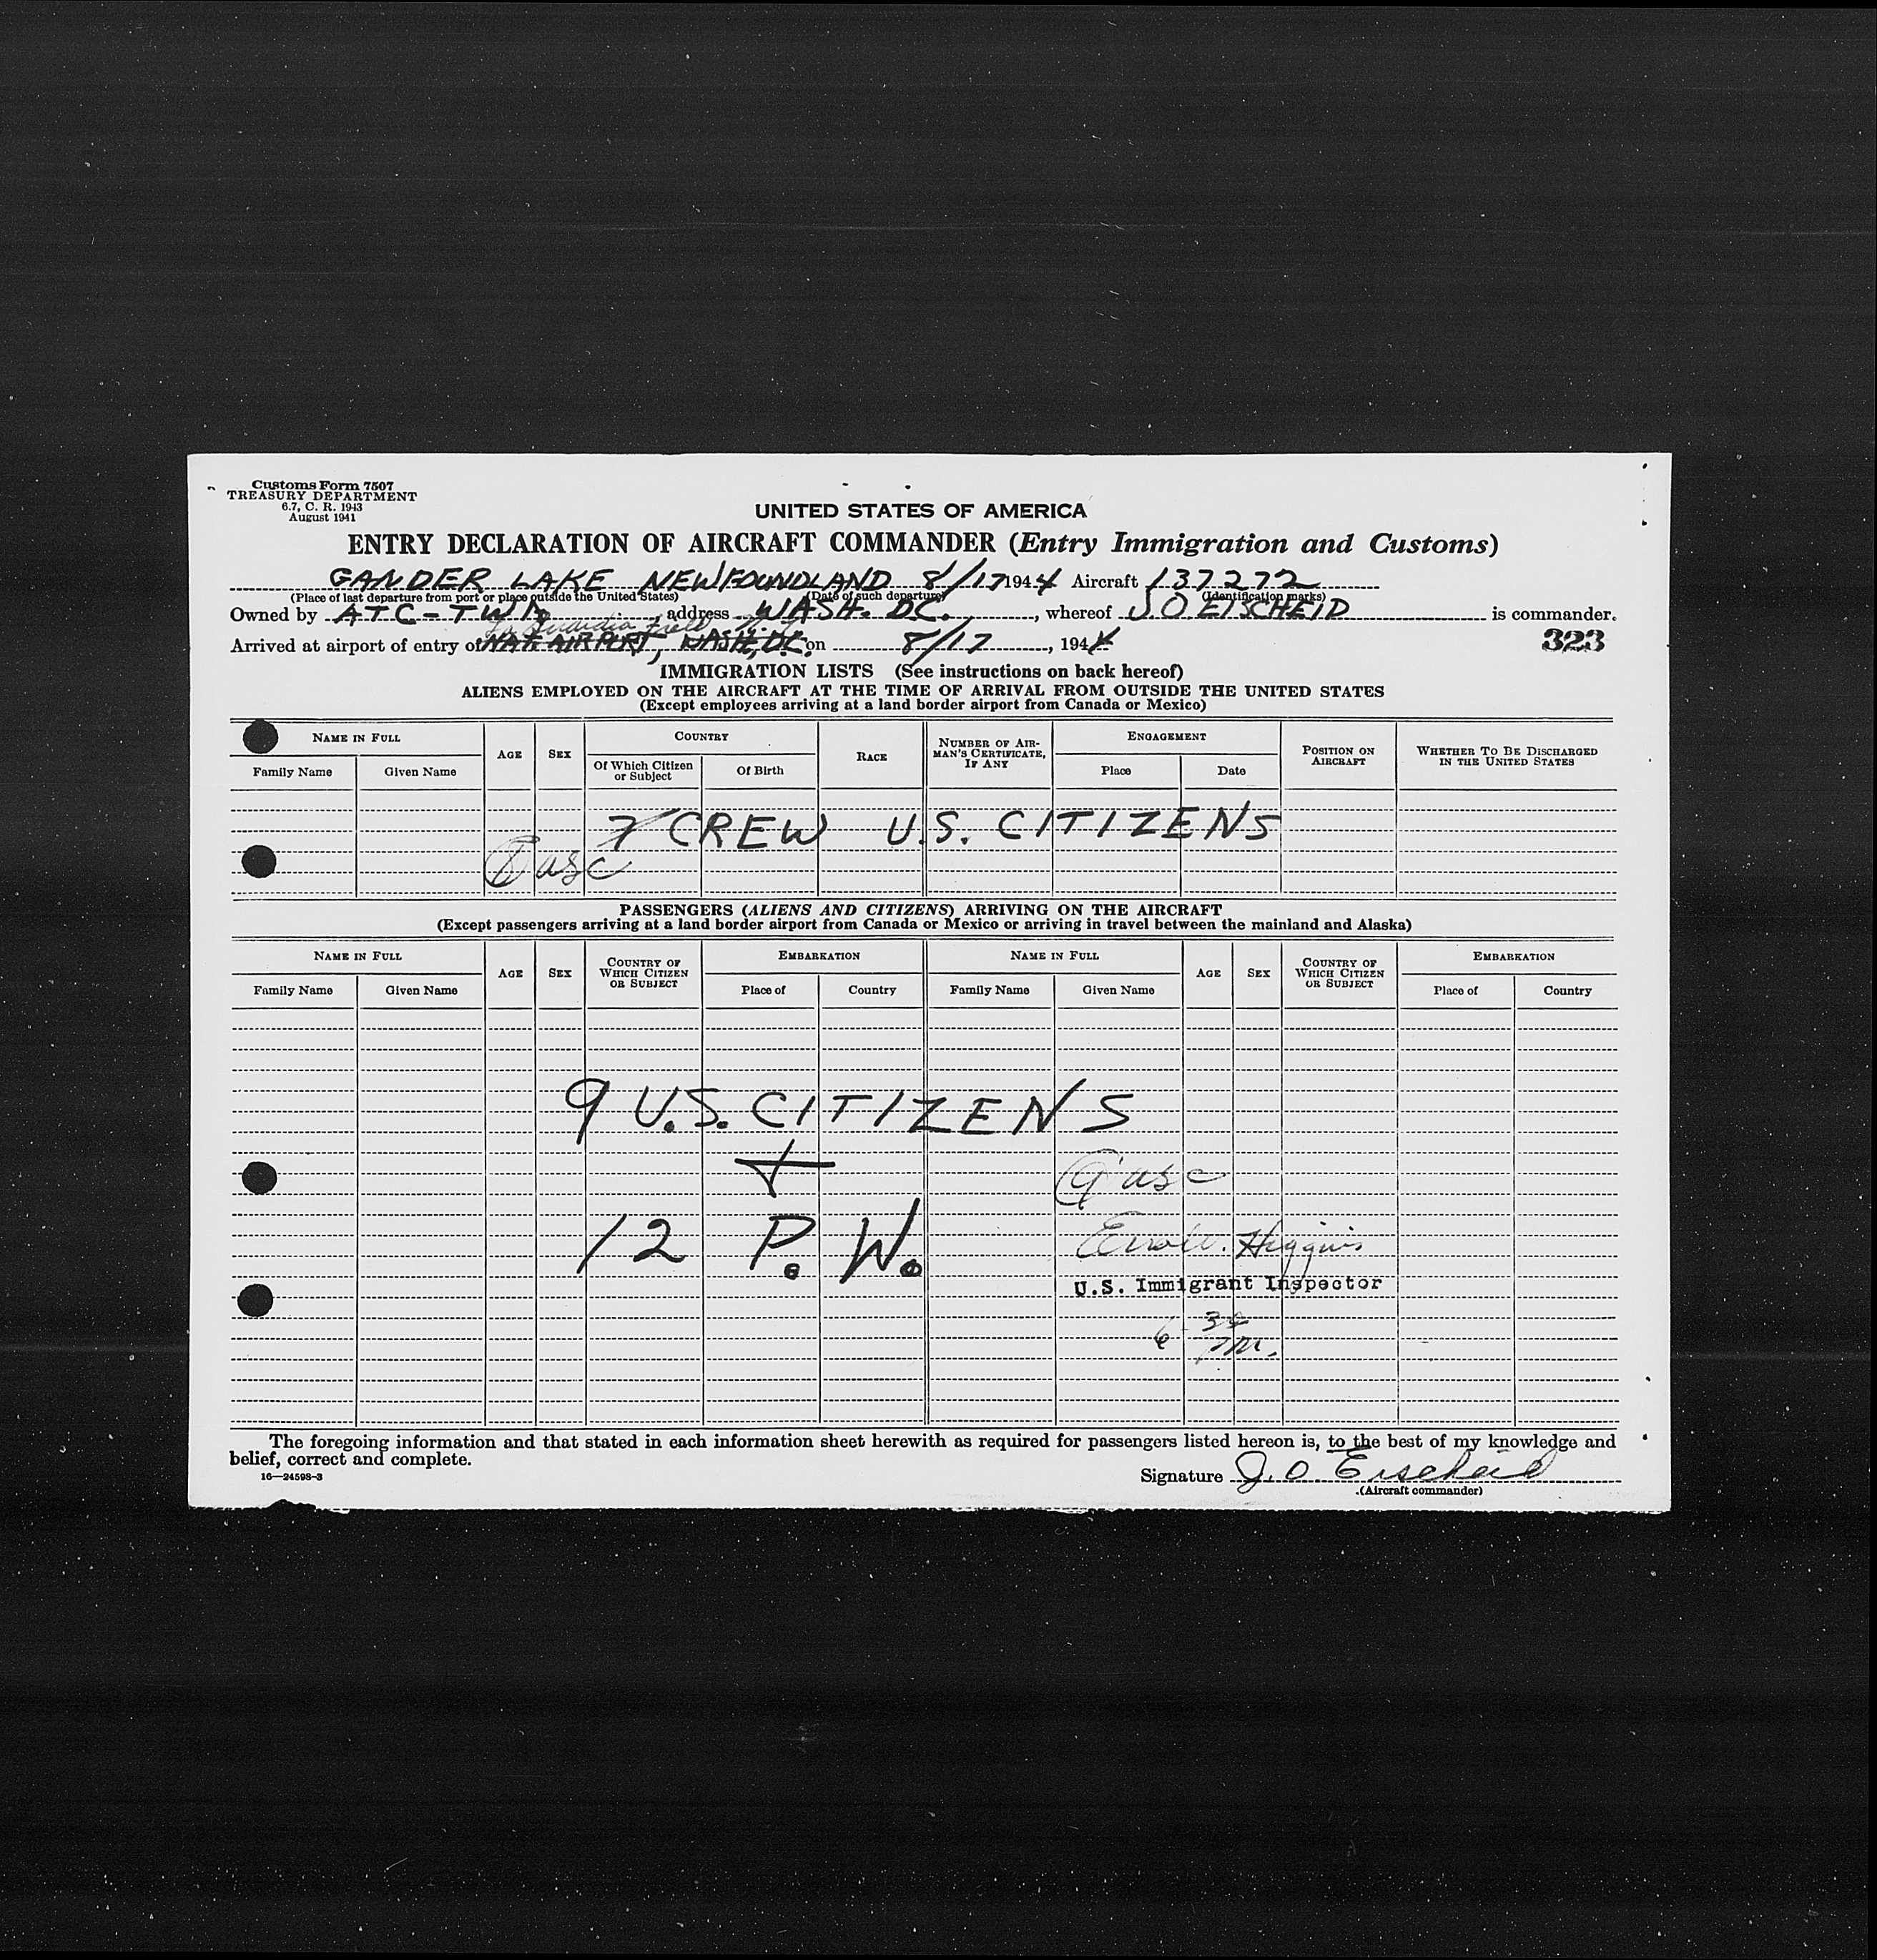 Customs Form 7507
TREASURY DEPARTMENT
6.7, C. R. 1943
August 1941
UNITED STATES OF AMERICA
ENTRY DECLARATION OF AIRCRAFT COMMANDER (Entry Immigration and Customs)
GANDER LAKE NEWFOUNDLAND 8/17 1944 Aircraft 137272
(Place of last departure from port or place outside the United States) (Date of such departure) (Identification marks)
Owned by ATC-TWA address WASH. D.C., whereof J.O EISCHEID is commander.
La Guardia Field N.Y.
Arrived at airport of entry of NAT AIRPORT, WASH, D.C. on 8/17, 1944
323
IMMIGRATION LISTS (See instructions on back hereof)
ALIENS EMPLOYED ON THE AIRCRAFT AT THE TIME OF ARRIVAL FROM OUTSIDE THE UNITED STATES
(Except employees arriving at a land border airport from Canada or Mexico)
NAME IN FULL AGE SEX COUNTRY RACE NUMBER OF AIRMAN'S CERTIFICATE, IF ANY ENGAGEMENT POSITION ON AIRCRAFT WHETHER TO BE DISCHARGED IN THE UNITED STATES
Family Name Given Name Of Which Citizen or Subject Of Birth Place Date
7 CREW U.S. CITIZENS
usc
PASSENGERS (ALIENS AND CITIZENS) ARRIVING ON THE AIRCRAFT
(Except passengers arriving at a land border airport from Canada or Mexico or arriving in travel between the mainland and Alaska)
NAME IN FULL AGE SEX COUNTRY OF WHICH CITIZEN OR SUBJECT EMBARKATION NAME IN FULL AGE SEX COUNTRY OF WHICH CITIZEN OR SUBJECT EMBARKATION
Family Name Given Name Place of Country Family Name Given Name Place of Country
9 U.S. CITIZENS
+
9 usc
12 P. W.
Higgins
U.S. Immigrant Inspector
6 30
PM.
The foregoing information and that stated in each information sheet herewith as required for passengers listed hereon is, to the best of my knowledge and
belief, correct and complete.
16—24598-3
Signature J.O. Eischeid
(Aircraft commander)